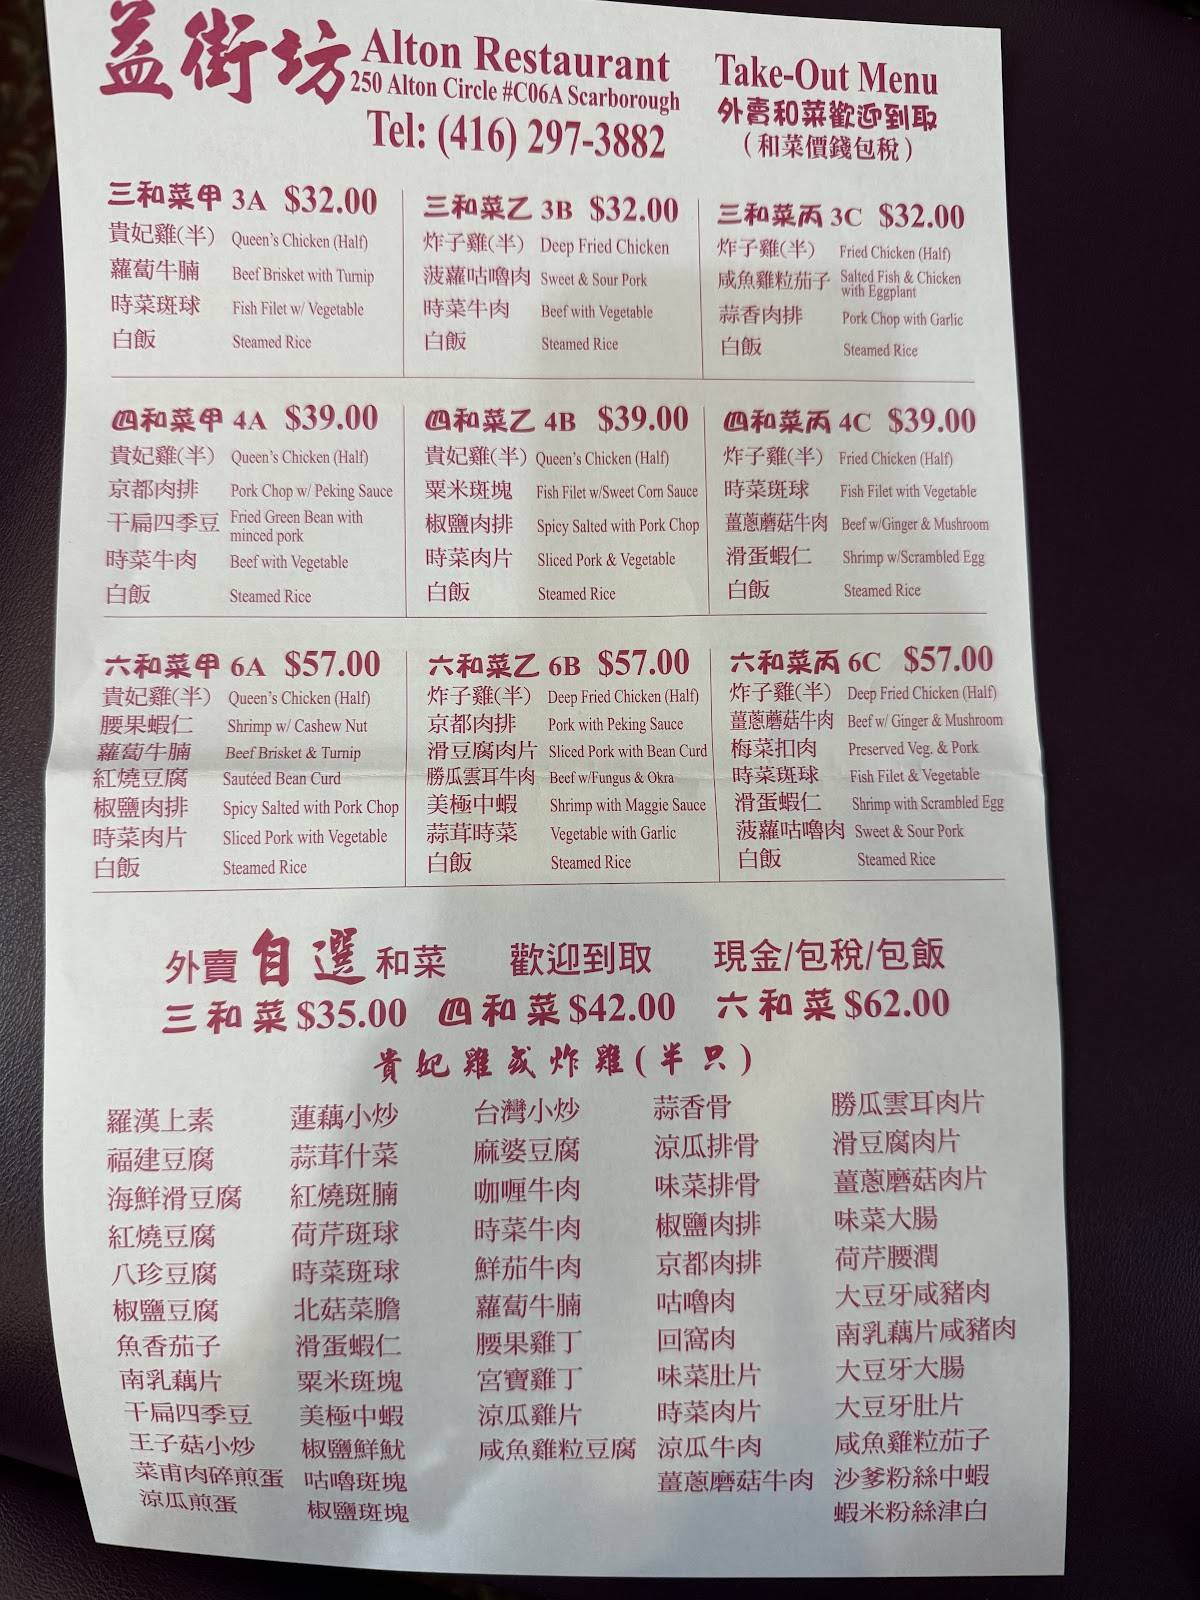 益街坊 Alton Restaurant
250 Alton Circle #C06A Scarborough
Tel: (416) 297-3882
Take-Out Menu
外賣和菜歡迎到取
(和菜價錢包稅)
三和菜甲 3A $32.00
貴妃雞(半) Queen's Chicken (Half)
蘿蔔牛腩 Beef Brisket with Turnip
時菜斑球 Fish Filet w/ Vegetable
白飯 Steamed Rice
三和菜乙 3B $32.00
炸子雞(半) Deep Fried Chicken
菠蘿咕嚕肉 Sweet & Sour Pork
時菜牛肉 Beef with Vegetable
白飯 Steamed Rice
三和菜丙 3C $32.00
炸子雞(半) Fried Chicken (Half)
咸魚雞粒茄子 Salted Fish & Chicken
with Eggplant
蒜香肉排 Pork Chop with Garlic
白飯 Steamed Rice
四和菜甲 4A $39.00
貴妃雞(半) Queen's Chicken (Half)
京都肉排 Pork Chop w/ Peking Sauce
干扁四季豆 Fried Green Bean with
minced pork
時菜牛肉 Beef with Vegetable
白飯 Steamed Rice
四和菜乙 4B $39.00
貴妃雞(半) Queen's Chicken (Half)
粟米斑塊 Fish Filet w/Sweet Corn Sauce
椒鹽肉排 Spicy Salted with Pork Chop
時菜肉片 Sliced Pork & Vegetable
白飯 Steamed Rice
四和菜丙 4C $39.00
炸子雞(半) Fried Chicken (Half)
時菜斑球 Fish Filet with Vegetable
薑蔥蘑菇牛肉 Beef w/Ginger & Mushroom
滑蛋蝦仁 Shrimp w/Scrambled Egg
白飯 Steamed Rice
六和菜甲 6A $57.00
貴妃雞(半) Queen's Chicken (Half)
腰果蝦仁 Shrimp w/ Cashew Nut
蘿蔔牛腩 Beef Brisket & Turnip
紅燒豆腐 Sautéed Bean Curd
椒鹽肉排 Spicy Salted with Pork Chop
時菜肉片 Sliced Pork with Vegetable
白飯 Steamed Rice
六和菜乙 6B $57.00
炸子雞(半) Deep Fried Chicken (Half)
京都肉排 Pork with Peking Sauce
滑豆腐肉片 Sliced Pork with Bean Curd
勝瓜雲耳牛肉 Beef w/Fungus & Okra
美極中蝦 Shrimp with Maggie Sauce
蒜茸時菜 Vegetable with Garlic
白飯 Steamed Rice
六和菜丙 6C $57.00
炸子雞(半) Deep Fried Chicken (Half)
薑蔥蘑菇牛肉 Beef w/ Ginger & Mushroom
梅菜扣肉 Preserved Veg. & Pork
時菜斑球 Fish Filet & Vegetable
滑蛋蝦仁 Shrimp with Scrambled Egg
菠蘿咕嚕肉 Sweet & Sour Pork
白飯 Steamed Rice
外賣自選和菜 歡迎到取 現金/包稅/包飯
三和菜$35.00 四和菜$42.00 六和菜$62.00
貴妃雞或炸雞(半只)
羅漢上素
福建豆腐
海鮮滑豆腐
紅燒豆腐
八珍豆腐
椒鹽豆腐
魚香茄子
南乳藕片
干扁四季豆
王子菇小炒
菜甫肉碎煎蛋
涼瓜煎蛋
蓮藕小炒
蒜茸什菜
紅燒斑腩
荷芹斑球
時菜斑球
北菇菜膽
滑蛋蝦仁
粟米斑塊
美極中蝦
椒鹽鮮魷
咕嚕斑塊
椒鹽斑塊
台灣小炒
麻婆豆腐
咖喱牛肉
時菜牛肉
鮮茄牛肉
蘿蔔牛腩
腰果雞丁
宮寶雞丁
涼瓜雞片
咸魚雞粒豆腐
蒜香骨
涼瓜排骨
味菜排骨
椒鹽肉排
京都肉排
咕嚕肉
回窩肉
味菜肚片
時菜肉片
涼瓜牛肉
薑蔥蘑菇牛肉
勝瓜雲耳肉片
滑豆腐肉片
薑蔥磨菇肉片
味菜大腸
荷芹腰潤
大豆牙咸豬肉
南乳藕片咸豬肉
大豆牙大腸
大豆牙肚片
咸魚雞粒茄子
沙爹粉絲中蝦
蝦米粉絲津白